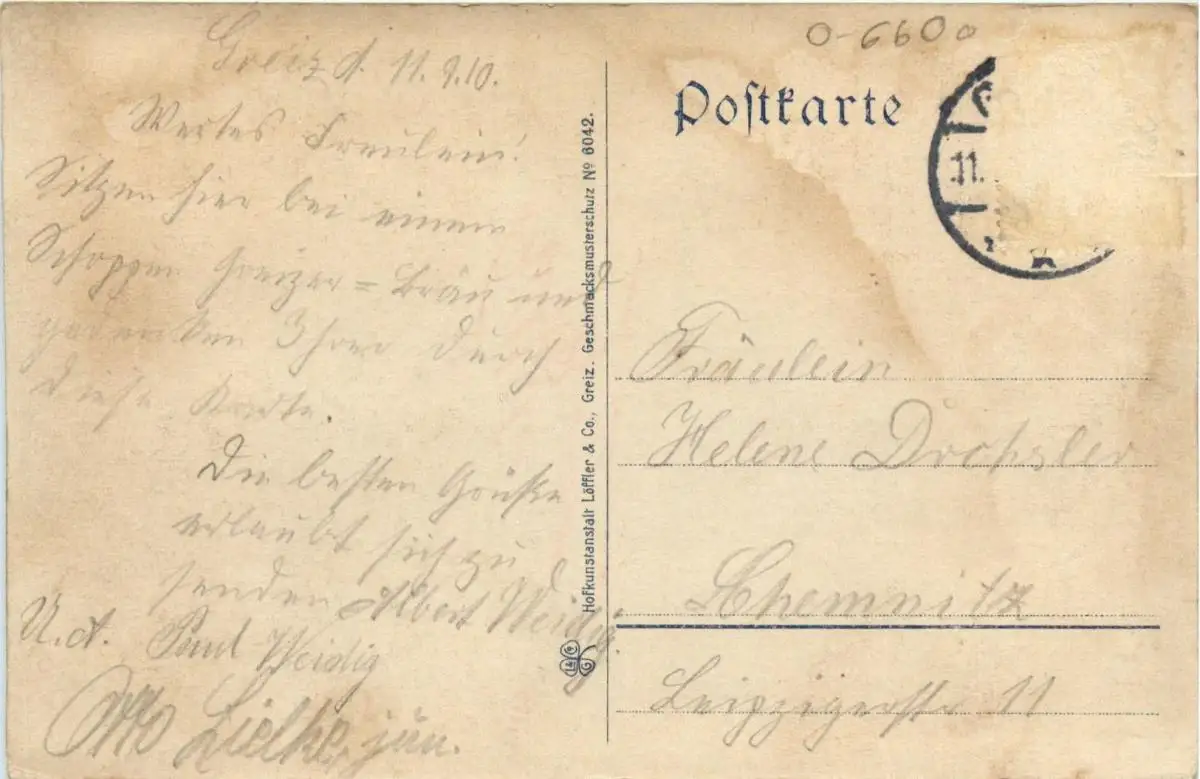 Greiz d. 11.9.10.
Wertes Fräulein!
Sitzen hier bei einem
Schoppen Greizer=Bräu und
gedenken Ihrer durch
diese Karte.
Die besten Grüße
erlaubt sich zu
senden Albert Weidig.
Paul Weidig
Otto jun.
Hofkunstanstalt Löffler & Co., Greiz. Geschmacksmusterschutz No 6042.
O-6600
Postkarte
11.
Fräulein
Helene Drechsler
Chemnitz
Leipzigerstr 11